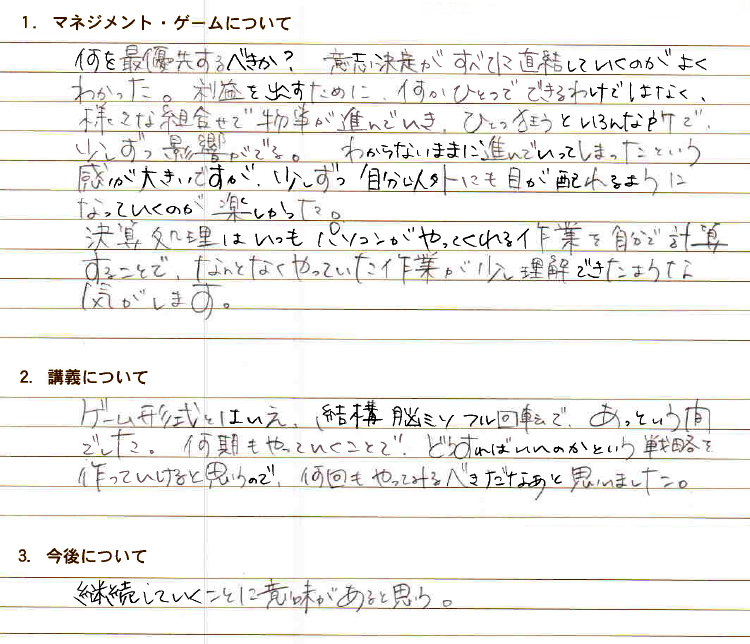 1. マネジメント・ゲームについて
何を最優先するべきか? 意志決定がすべてに直結していくのがよく
わかった。利益を出すために、何かひとつでできるわけではなく、
様々な組合せで物事が進んでいき、ひとつ狂うといろんな所で、
少しずつ影響がでる。 わからないままに進んでいってしまったという
感が大きいですが、少しずつ自分以外にも目が配れるように
なっていくのが楽しかった。
決算処理はいつもパソコンがやってくれる作業を自分で計算
することで、なんとなくやっていた作業が少し理解できたような
気がします。
2. 講義について
ゲーム形式とはいえ、結構脳ミソフル回転で、あっという間
でした。何期もやっていくことで、どうすればいいのかという戦略を
作っていけると思うので、何回もやってみるべきだなあと思いました。
3. 今後について
継続していくことに意味があると思う。